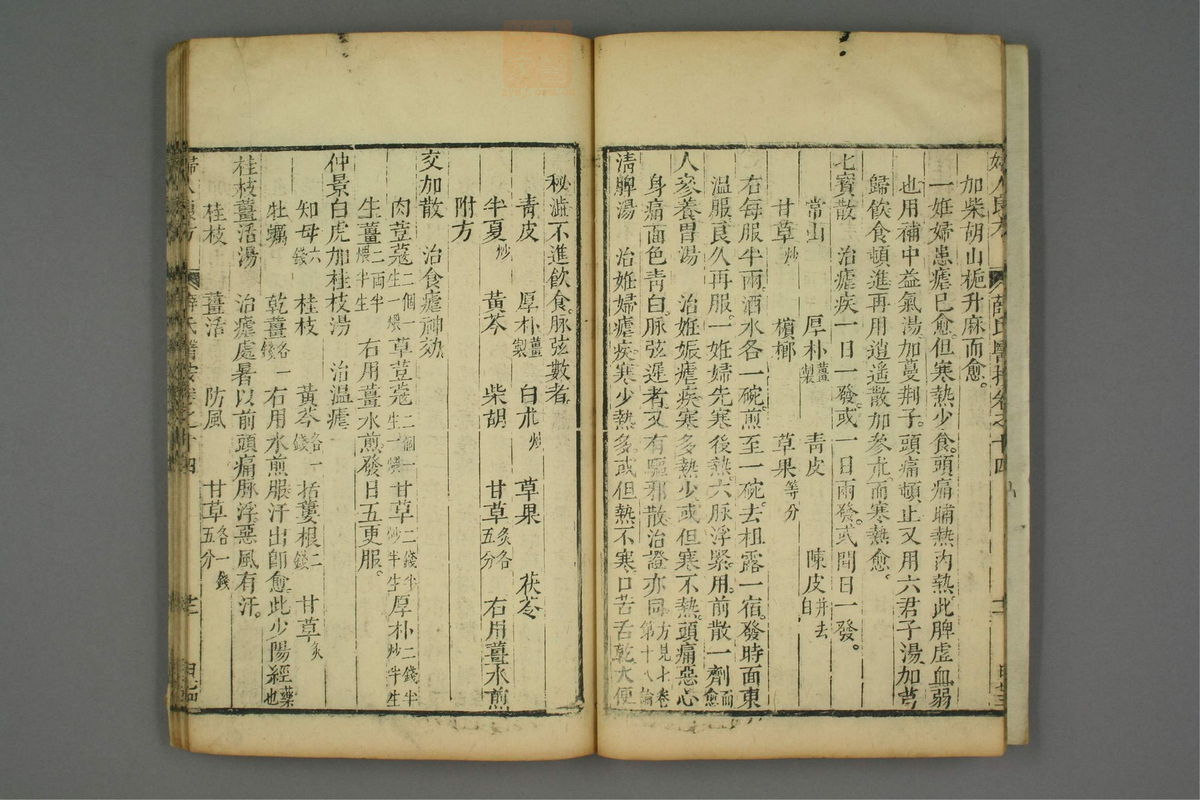 加柴胡山梔升麻而愈。
一妊婦患瘧已愈。但寒熱少食。頭痛晡熱內熱。此脾虛血弱
也。用補中益氣湯加蔓荊子。頭痛頓止。又用六君子湯加芎
歸飲食頓進。再用逍遙散加參朮。而寒熱愈。
七寳散　治瘧疾一日一發。或一日兩發。或間日一發。
常山　厚朴薑製　青皮　陳皮并去白
甘草炒　檳榔　草果等分
右每服半兩。酒水各一碗。煎至一碗。去柤露一宿。發時面東
溫服。良久再服。一妊婦先寒後熱。六脉浮緊。用前散一劑而愈
人參養胃湯　治妊娠瘧疾。寒多熱少。或但寒不熱。頭痛惡心
身痛面色青白。脉弦遲者。又有驅邪散治證亦同。方見七卷第十八論
清脾湯　治妊婦瘧疾。寒少熱多。或但熱不寒。口苦舌乾大便
秘澁不進飲食。脉弦數者。
青皮　厚朴薑製　白朮炒　草果　茯苓
半夏炒　黃芩　柴胡　甘草炙各五分　右用薑水煎
附方
交加散　治食瘧神効
肉荳蔻二個一生一煨　草荳蔻二個一生一煨　甘草二錢半炒半生　厚朴二錢半炒半生
生薑二兩半煨半生　右用薑水煎。發日五更服。
仲景白虎加桂枝湯　治溫瘧
知母六錢　桂枝　黃芩各一錢　栝蔞根二錢　甘草炙
牡蠣　乾薑各一錢　右用水煎服。汗出卽愈。此少陽經藥也
桂枝薑活湯　治瘧處暑以前頭痛脉浮。惡風有汗。
桂枝　薑活　防風　甘草炙各一錢五分